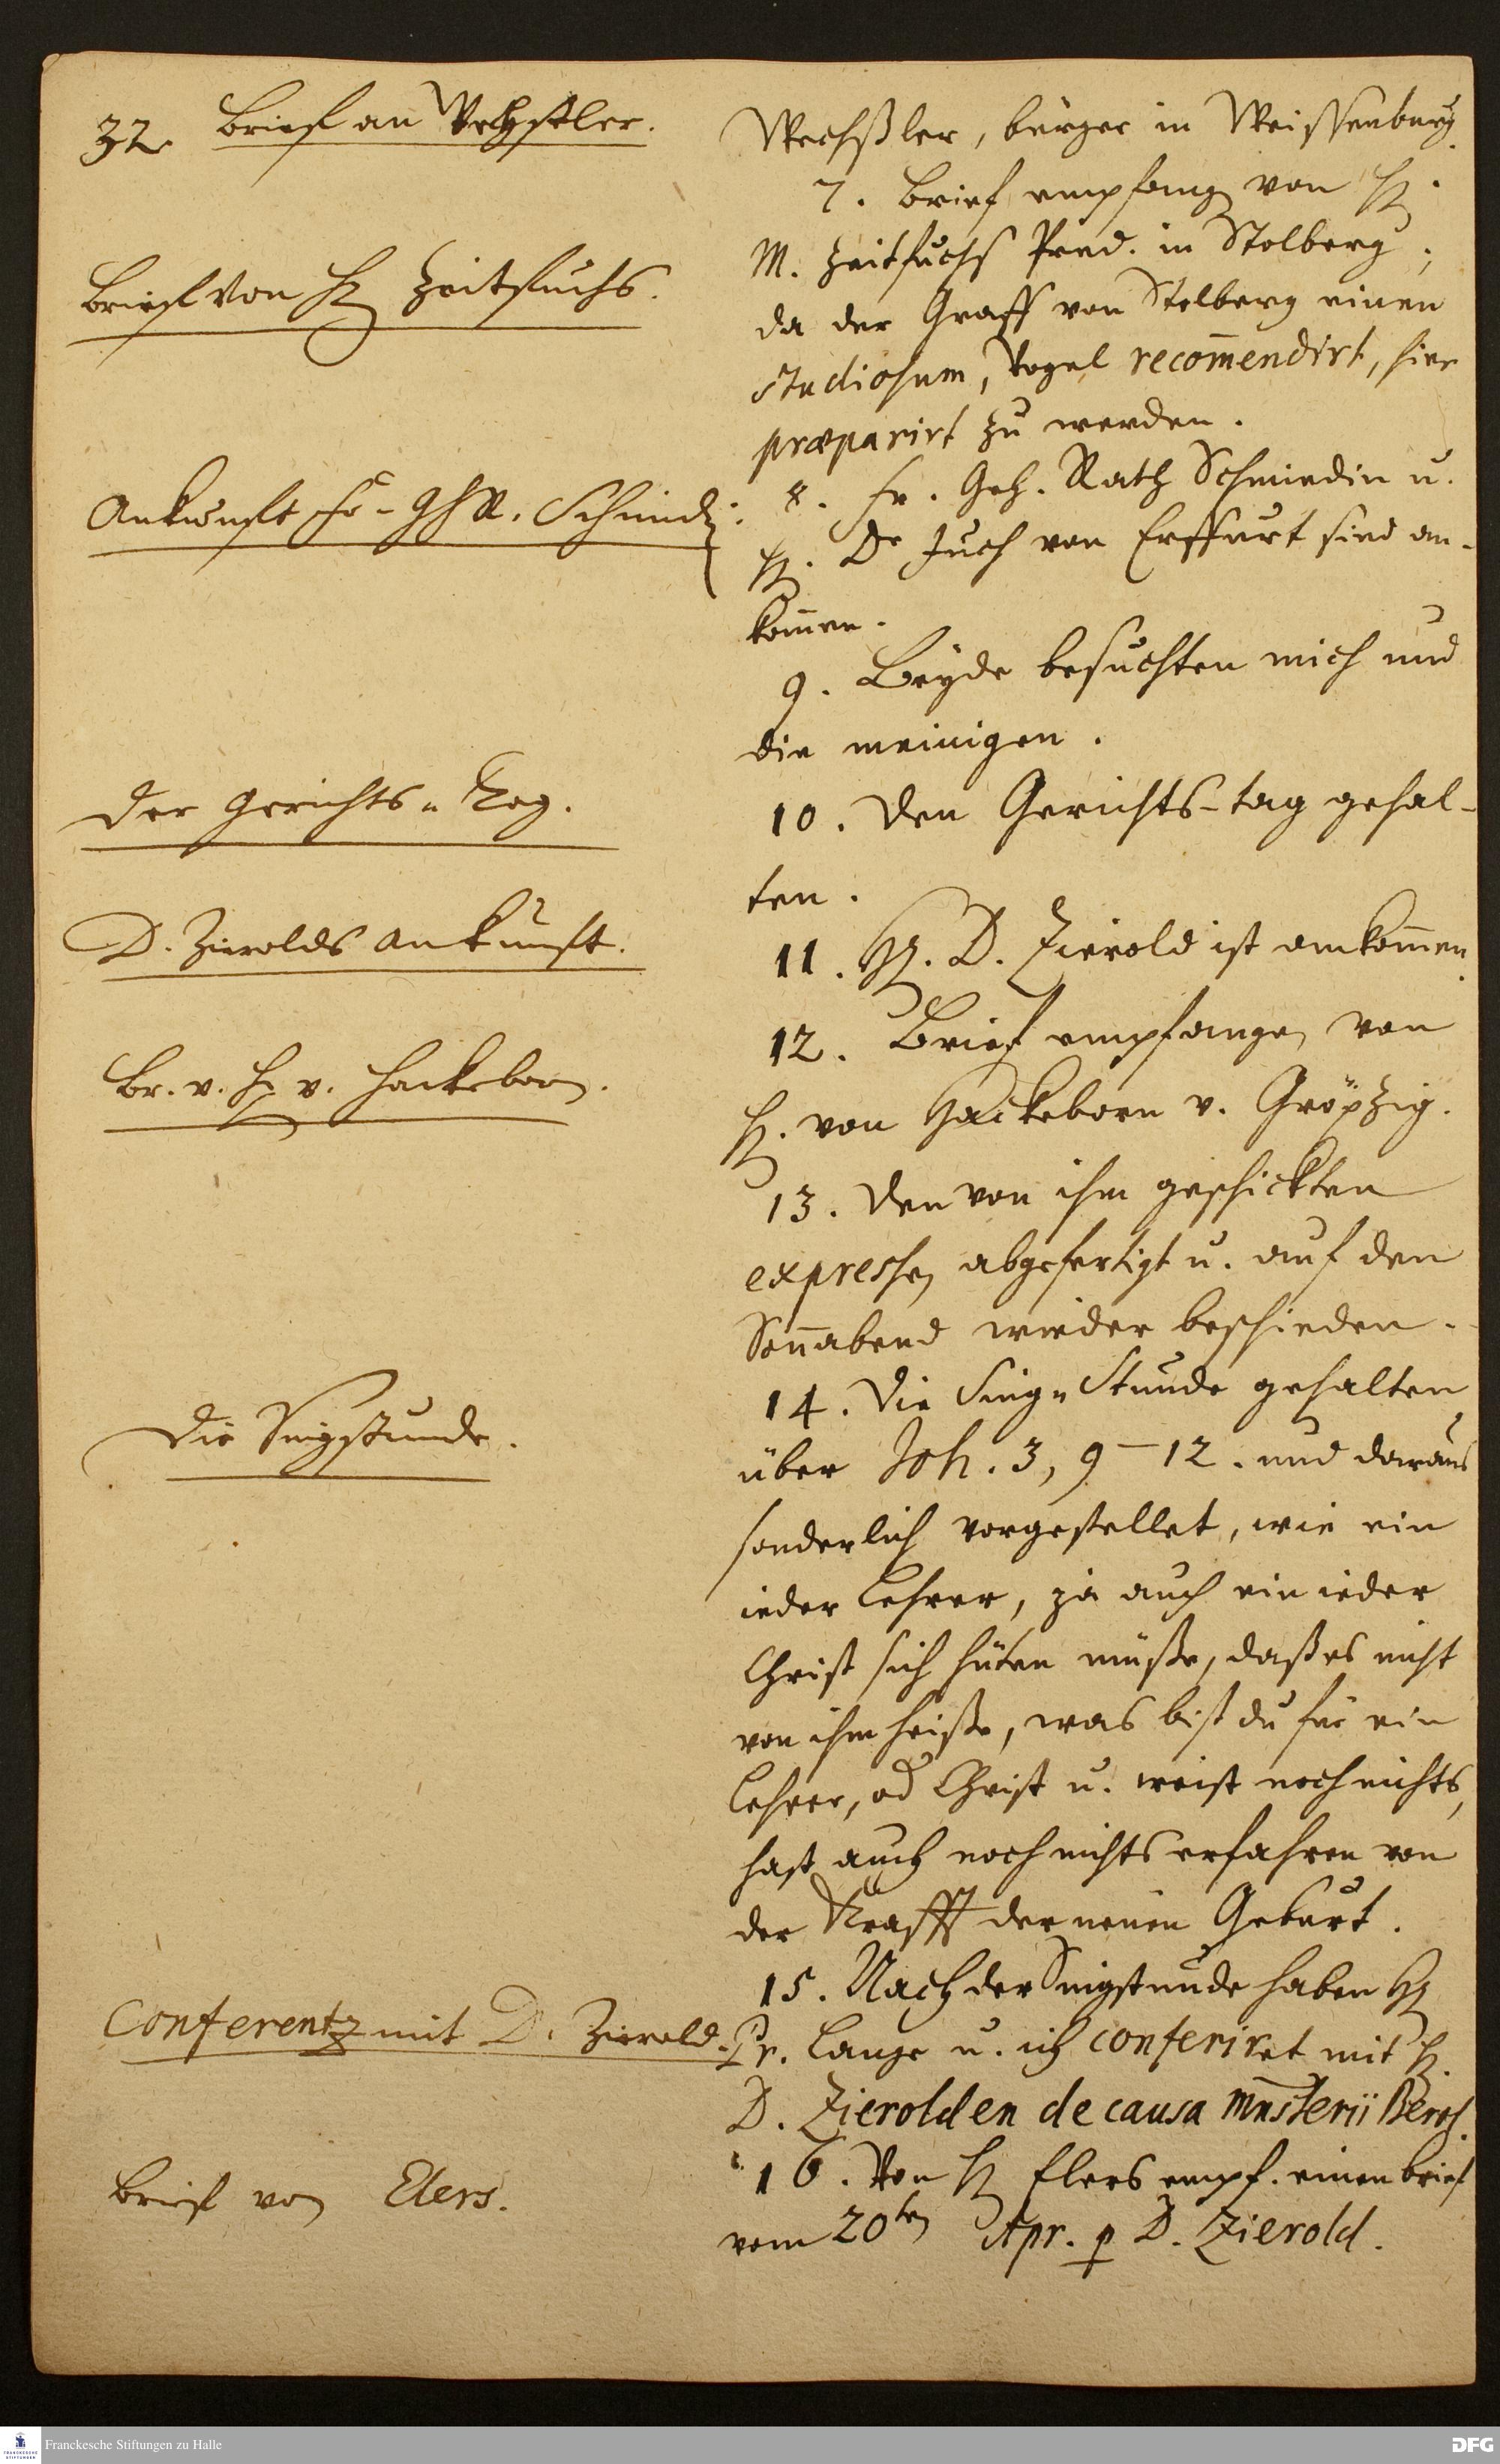 32. Brief an Wechsler.
Brief von H Zeitfuchs.
Ankunfft Fr. GhR. Schmid:
Der Gerichts-Tag.
D. Zierolds Ankunfft.
Br. v. H v. Hackeborn.
Die Singstunde.
Conferentz mit D. Zierold.
Brief von Elers.
Wechßler, bürger in Weissenburg.
7. Brief empfang von H.
M. Zeitfuchs Pred. in Stolberg,
da der Graff von Stolberg einen
studiosum, Vogel recom̄endirt, hier
præparirt zu werden.
8. Fr. Geh. Rath Schmiedin u.
H. Dr Juch von Erffurt sind an-
kom̄en.
9. Beyde besuchten mich und
die meinigen.
10. Den Gerichts-tag gehal-
ten.
11. H. D. Zierold ist ankom̄en.
12. Brief empfangen von
H. von Hackeborn v. Gröpzig.
13. Den von ihm geschickten
expressen abgefertigt u. auf den
Son̄abend wieder beschieden.
14. Die Sing-Stunde gehalten
über Joh. 3, 9–12. und daraus
sonderlich vorgestellet, wie ein
ieder Lehrer, ja auch ein ieder
Christ sich hüten müße, daß es nicht
von ihm heiße, was bist du für ein
Lehrer, od Christ u. weist noch nichts,
hast auch noch nichts erfahren von
der Krafft der neuen Geburt.
15. Nach der Singstunde haben H
Pr. Lange u. ich conferiret mit H.
D. Zierolden de causa mnsterii Berol.
16. Von H Elers empf. einen brief
vom 20ten Apr. p D. Zierold.
Franckesche Stiftungen zu Halle
DFG